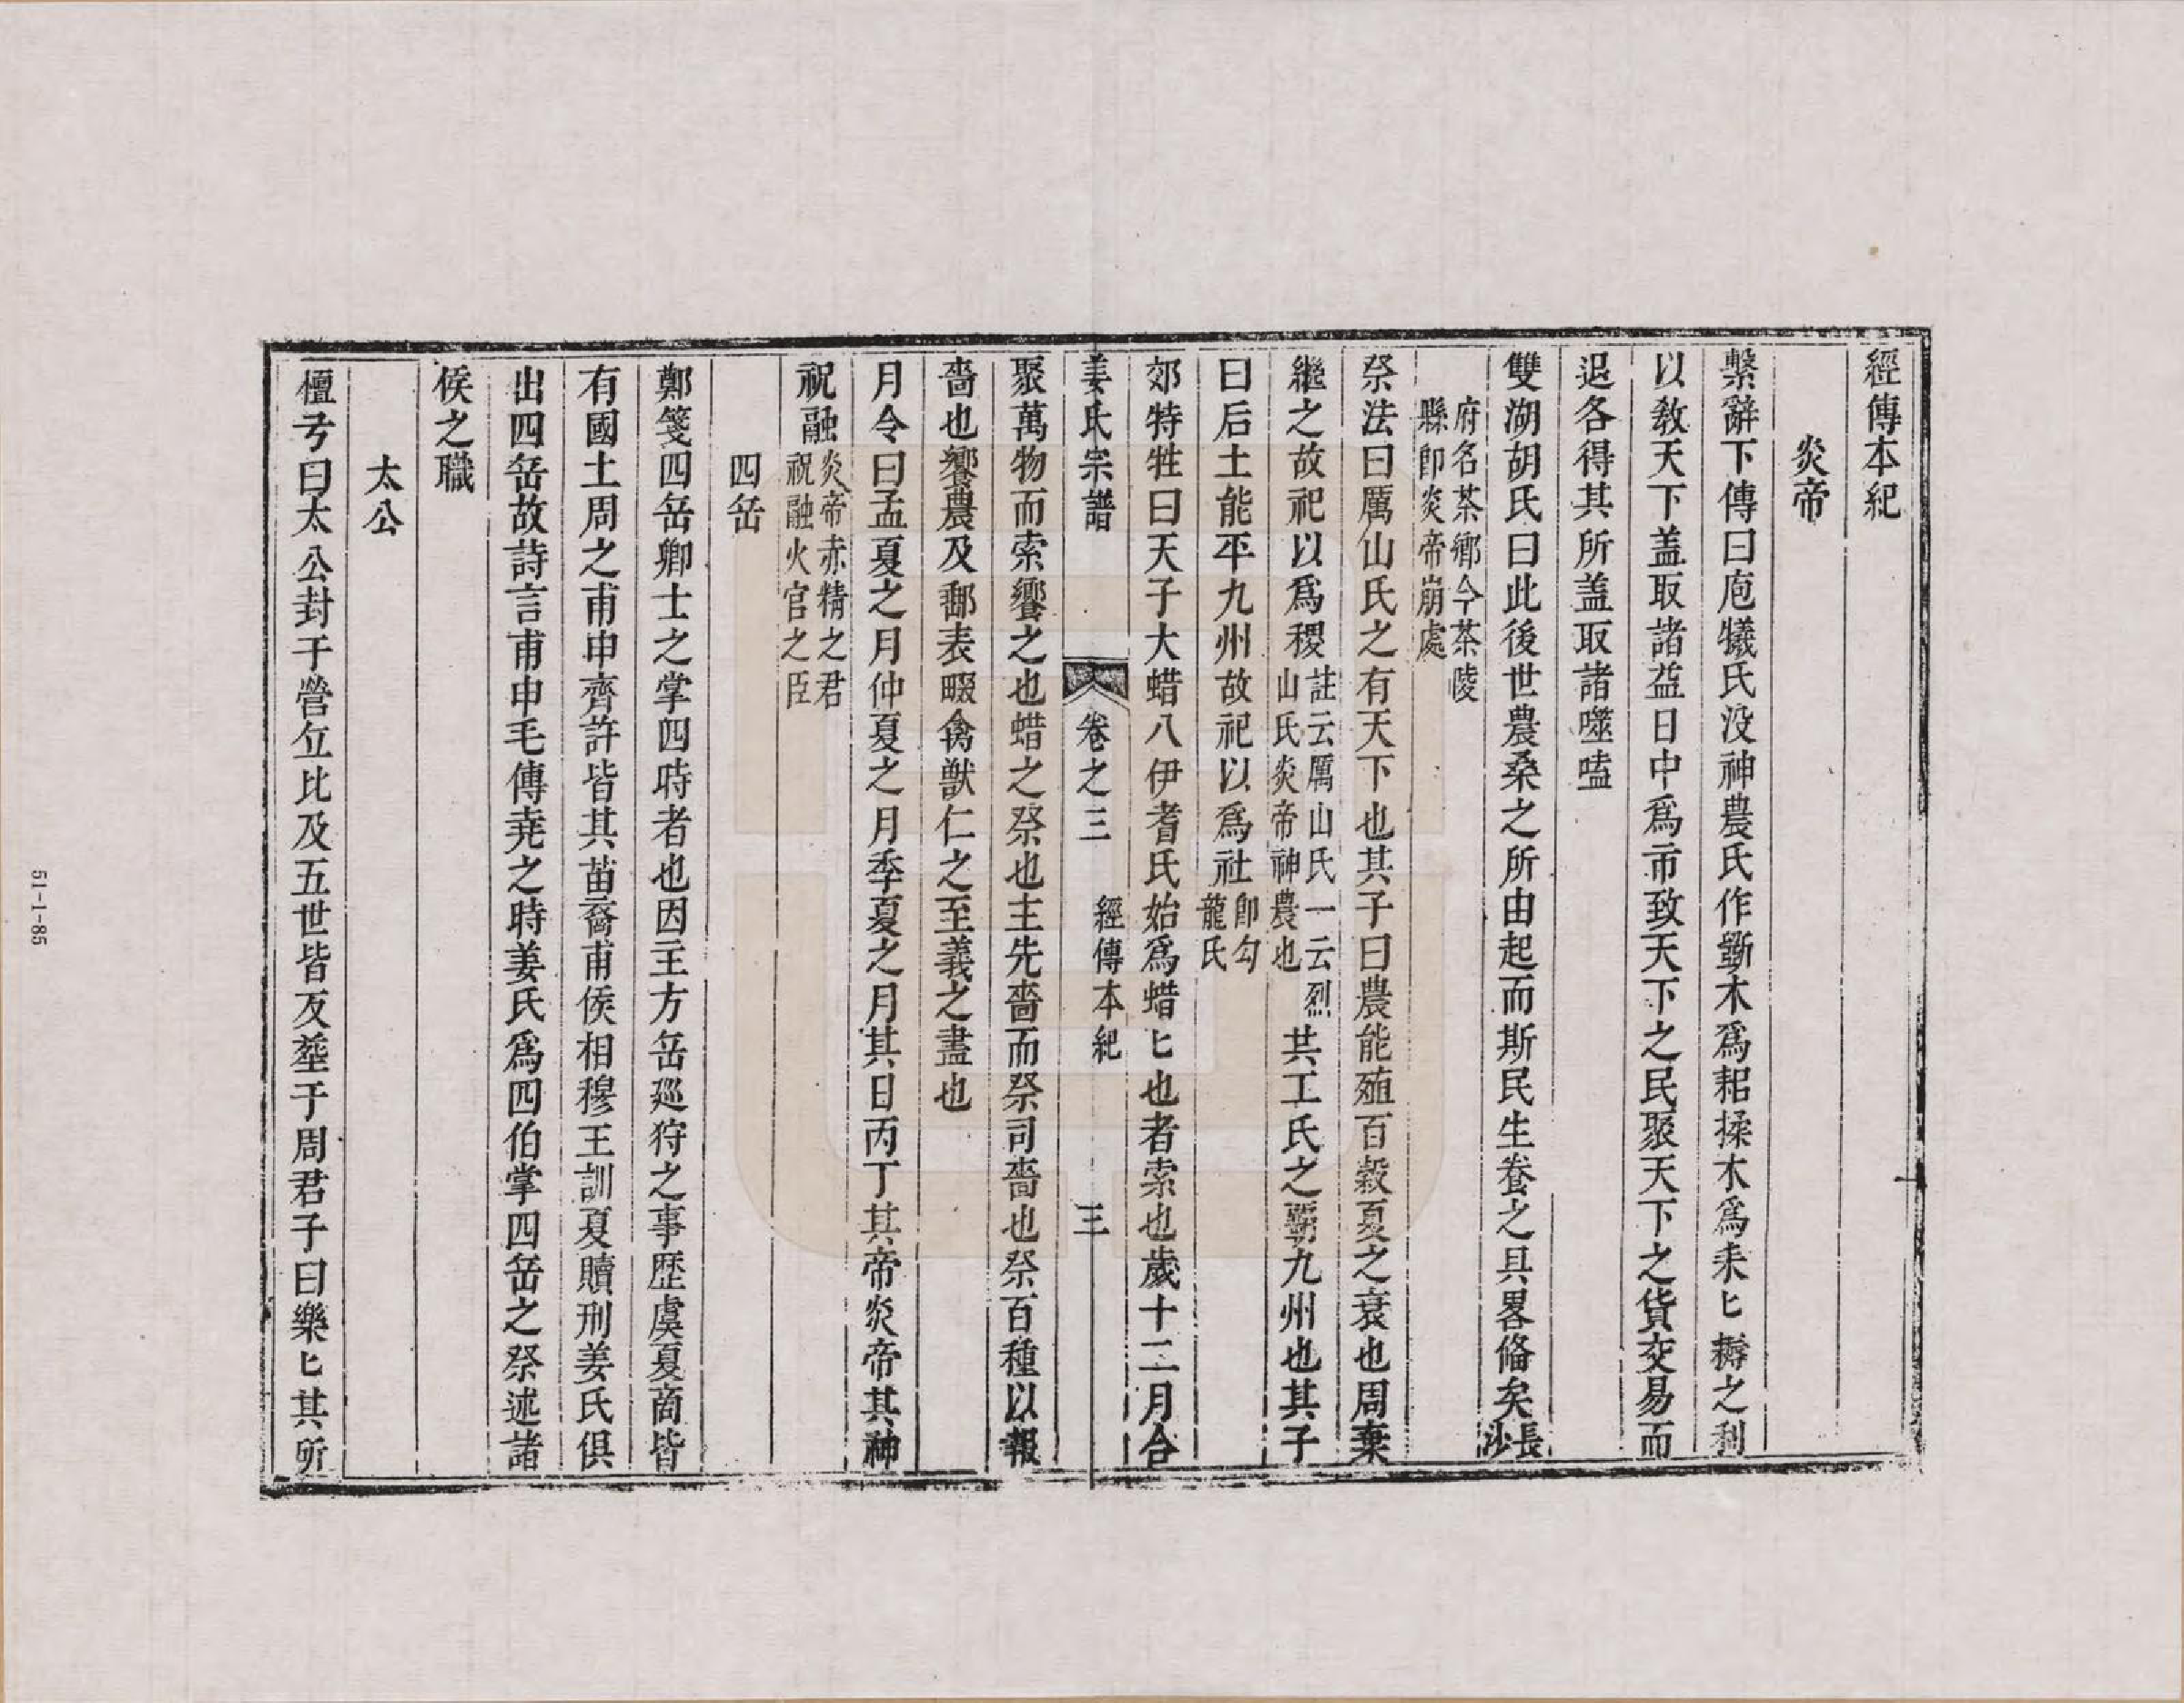 經傳本紀
炎帝
繫辭下傳曰庖犧氏没神農氏作斵木爲耜揉木爲耒匕耨之利
以敎天下盖取諸益日中爲市致天下之民聚天下之貨交易而
退各得其所盖取諸噬嗑
雙湖胡氏曰此後世農桑之所由起而斯民生養之具畧俻矣長沙
府名茶鄉今茶陵
縣卽炎帝崩處
祭法曰厲山氏之有天下也其子曰農能殖百榖夏之衰也周棄
繼之故祀以爲稷註云厲山氏一云烈山氏炎帝神農也共工氏之霸九州也其子
曰后土能平九州故祀以爲社卽勾龍氏
郊特牲曰天子大蜡八伊耆氏始爲蜡匕也者索也歲十二月合
姜氏宗譜 卷之三 經傳本紀 三
聚萬物而索饗之也蜡之祭也主先嗇而祭司嗇也祭百種以報
嗇也饗農及郵表畷禽獸仁之至義之盡也
月令曰孟夏之月仲夏之月季夏之月其日丙丁其帝炎帝其神
祝融炎帝赤精之君祝融火官之臣
四岳
鄭箋四岳卿士之掌四時者也因主方岳廵狩之事歷虞夏商皆
有國土周之甫申齊許皆其苗裔甫侯相穆王訓夏贖刑姜氏俱
出四岳故詩言甫申毛傳堯之時姜氏爲四伯掌四岳之祭述諸
侯之職
太公
檀弓曰太公封于營丘比及五世皆反塟于周君子曰樂匕其所
51-1-85